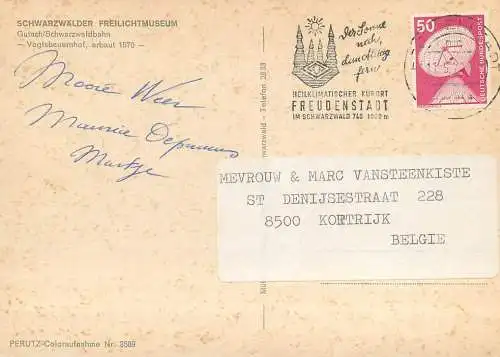 SCHWARZWÄLDER FREILICHTMUSEUM
Gutach/Schwarzwaldbahn
- Vogtsbauernhof, erbaut 1570 -
Mooie Weer
Maurice
Martje
PERUTZ-Coloraufnahme Nr. 3589
Schwarzwald - Telefon
Der Sonne
nah,
dem Alltag
fern
HEILKLIMATISCHER KURORT
FREUDENSTADT
IM SCHWARZWALD 740-1000 m
50
DEUTSCHE BUNDESPOST
MEVROUW & MARC VANSTEENKISTE
ST DENIJSESTRAAT 228
8500 KORTRIJK
BELGIE